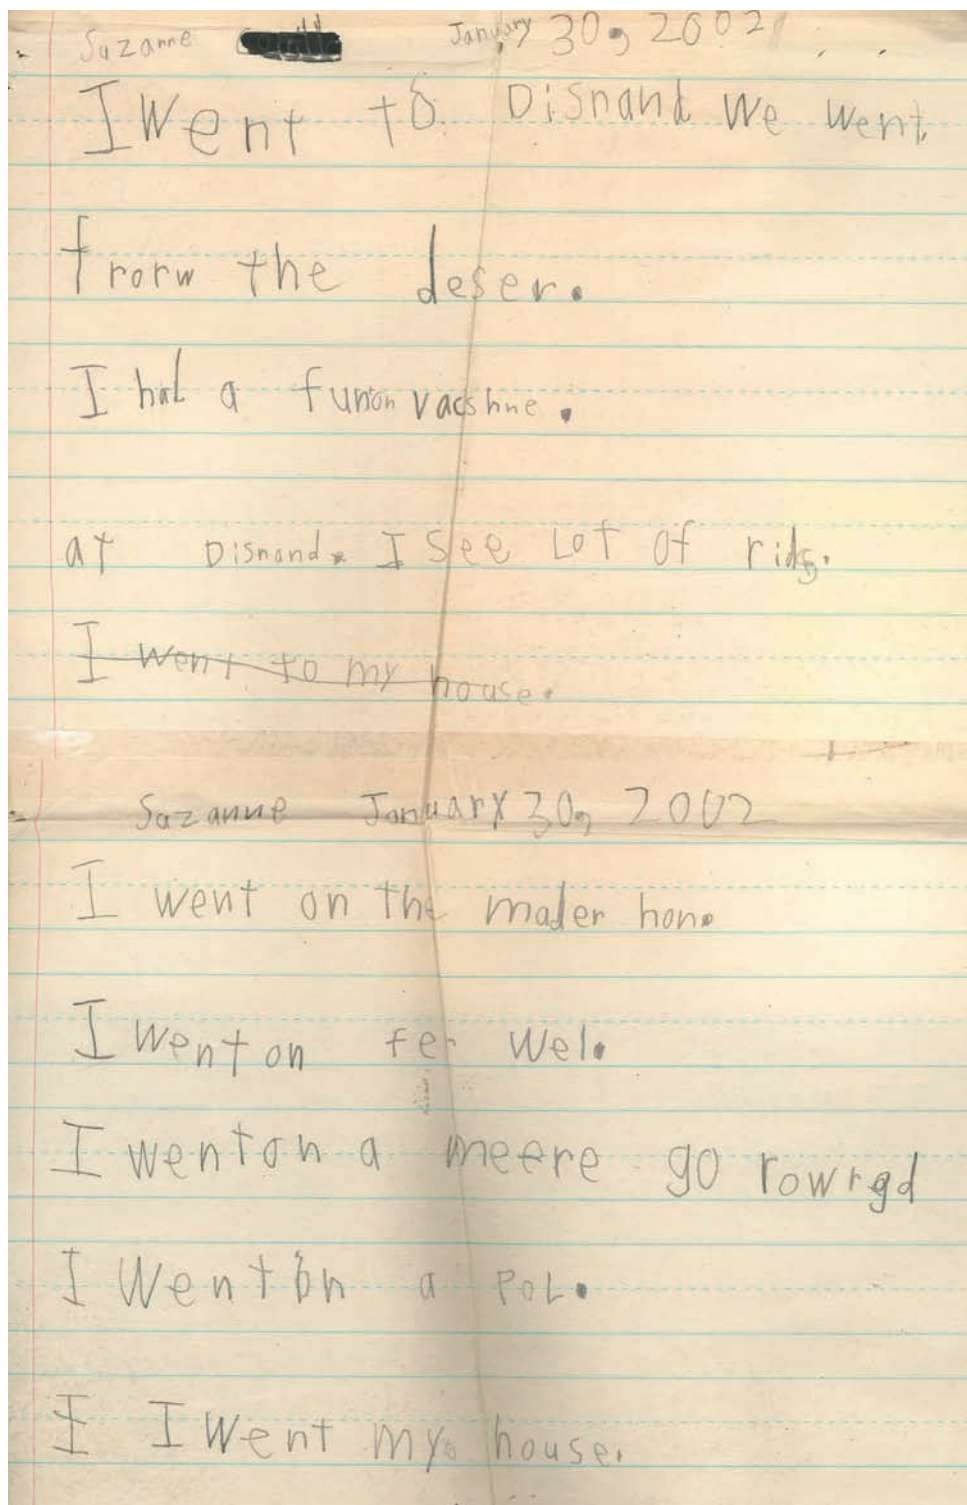 Suzanne January 30, 2002
I Went to Disnand We went
frorw the deser.
I had a funon vacshne.
at Disnand. I see Lot of rids.
I went to my house.
Suzanne January 30, 2002
I went on the mader hon.
I went on fer wel.
I wenton a meere go rowrgd
I Went on a PoL.
I I Went my house.